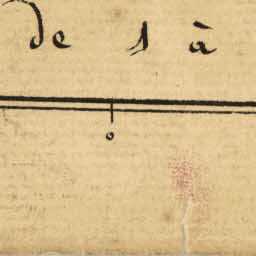 de 1 à
0